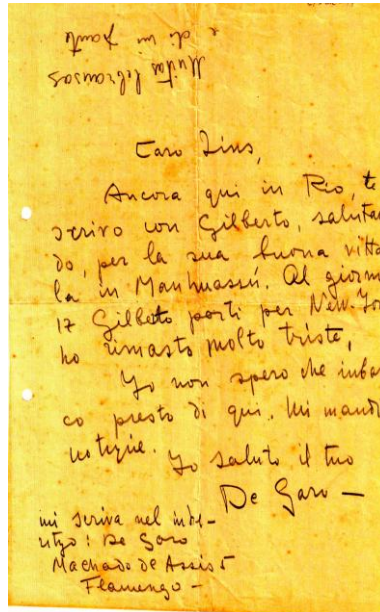 Muitas lembranças
e di un
Caro Lins,
Ancora qui in Rio, te
scrivo con Gilberto, salutan
do, per la sua buona vitto
la in Manhuassú. Al giorno
17 Gilberto parti per New-Yor
ho rimasto molto triste,
Yo non spero che inbar
co presto di qui. Mi mandi
notizie. Yo saluto il tuo
De Garo —
mi scriva nel inde-
ritzo: De Garo
Machado de Assis 5
Flamengo —